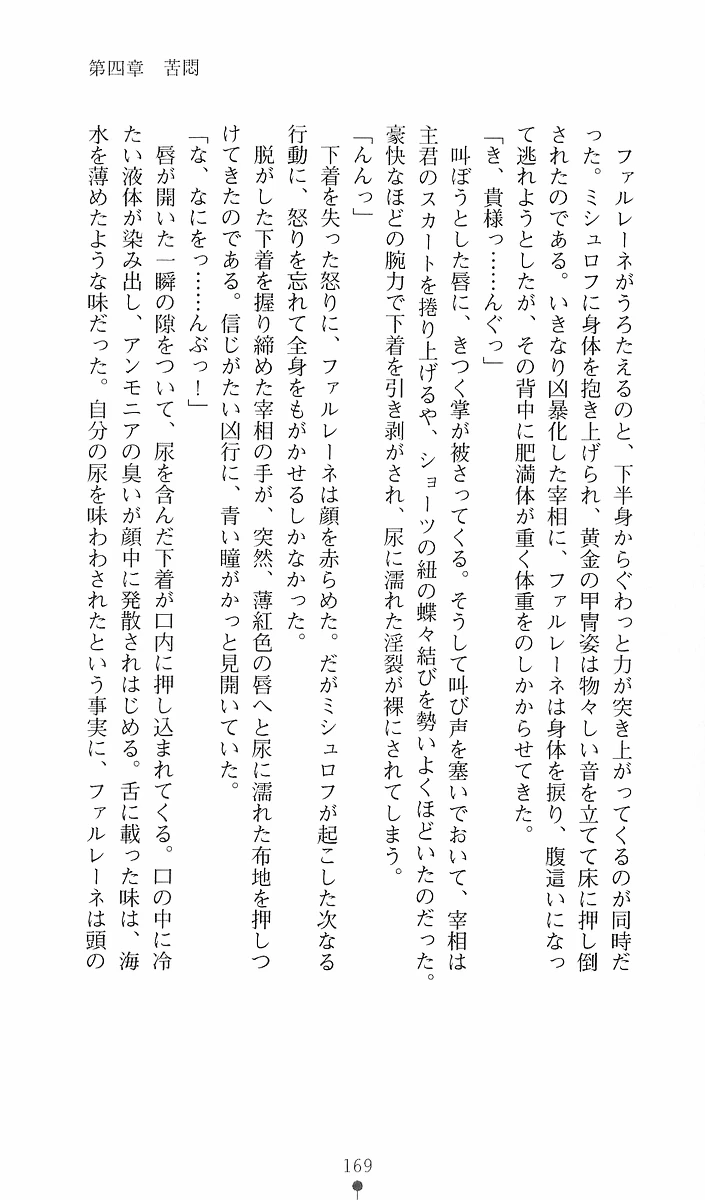 第四章　苦悶
　ファルレーネがうろたえるのと、下半身からぐわっと力が突き上がってくるのが同時だ
った。ミシュロフに身体を抱き上げられ、黄金の甲冑姿は物々しい音を立てて床に押し倒
されたのである。いきなり凶暴化した宰相に、ファルレーネは身体を捩り、腹這いになっ
て逃れようとしたが、その背中に肥満体が重く体重をのしかからせてきた。
「き、貴様っ……んぐっ」
　叫ぼうとした唇に、きつく掌が被さってくる。そうして叫び声を塞いでおいて、宰相は
主君のスカートを捲り上げるや、ショーツの紐の蝶々結びを勢いよくほどいたのだった。
豪快なほどの腕力で下着を引き剥がされ、尿に濡れた淫裂が裸にされてしまう。
「んんっ」
　下着を失った怒りに、ファルレーネは顔を赤らめた。だがミシュロフが起こした次なる
行動に、怒りを忘れて全身をもがかせるしかなかった。
　脱がした下着を握り締めた宰相の手が、突然、薄紅色の唇へと尿に濡れた布地を押しつ
けてきたのである。信じがたい凶行に、青い瞳がかっと見開いていた。
「な、なにをっ……んぶっ！」
　唇が開いた一瞬の隙をついて、尿を含んだ下着が口内に押し込まれてくる。口の中に冷
たい液体が染み出し、アンモニアの臭いが顔中に発散されはじめる。舌に載った味は、海
水を薄めたような味だった。自分の尿を味わわされたという事実に、ファルレーネは頭の
169